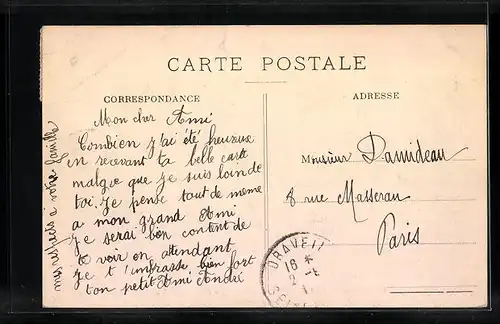 CARTE POSTALE
CORRESPONDANCE
ADRESSE
Mon cher Ami
Combien j'ai été heureux
en recevant ta belle carte
malgre que je suis loin de
toi. Je pense tout de même
a mon grand Ami
Je serai bien content de
te voir en attendant
Je t'embrasse bien fort
ton petit Ami André
mes respects a votre famille
Monsieur Damideau
8 rue Masseran
Paris
DRAVEIL
16 *
2
SEINE